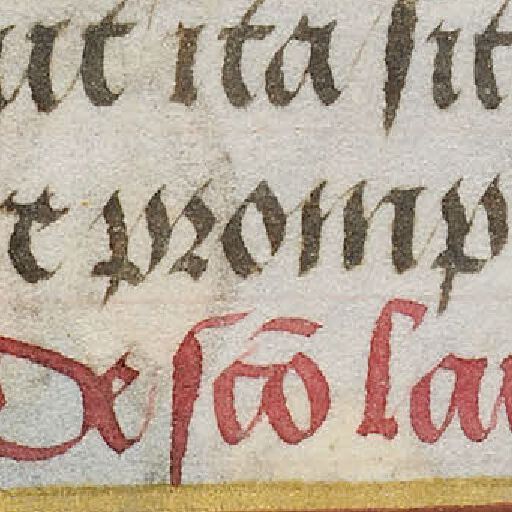 ut ita sit
et promp
De sc̄o lau